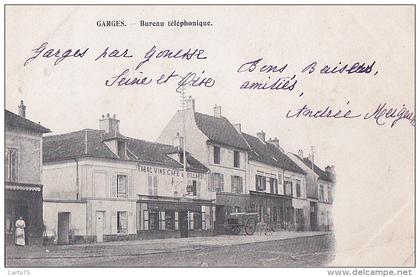 GARGES. — Bureau téléphonique.
Garges par Gonesse
Seine et Oise
Bons Baisers,
amitiés,
Andrée
TABAC VINS CAFÉ & BILLARD
Carto75
© delcampe.net